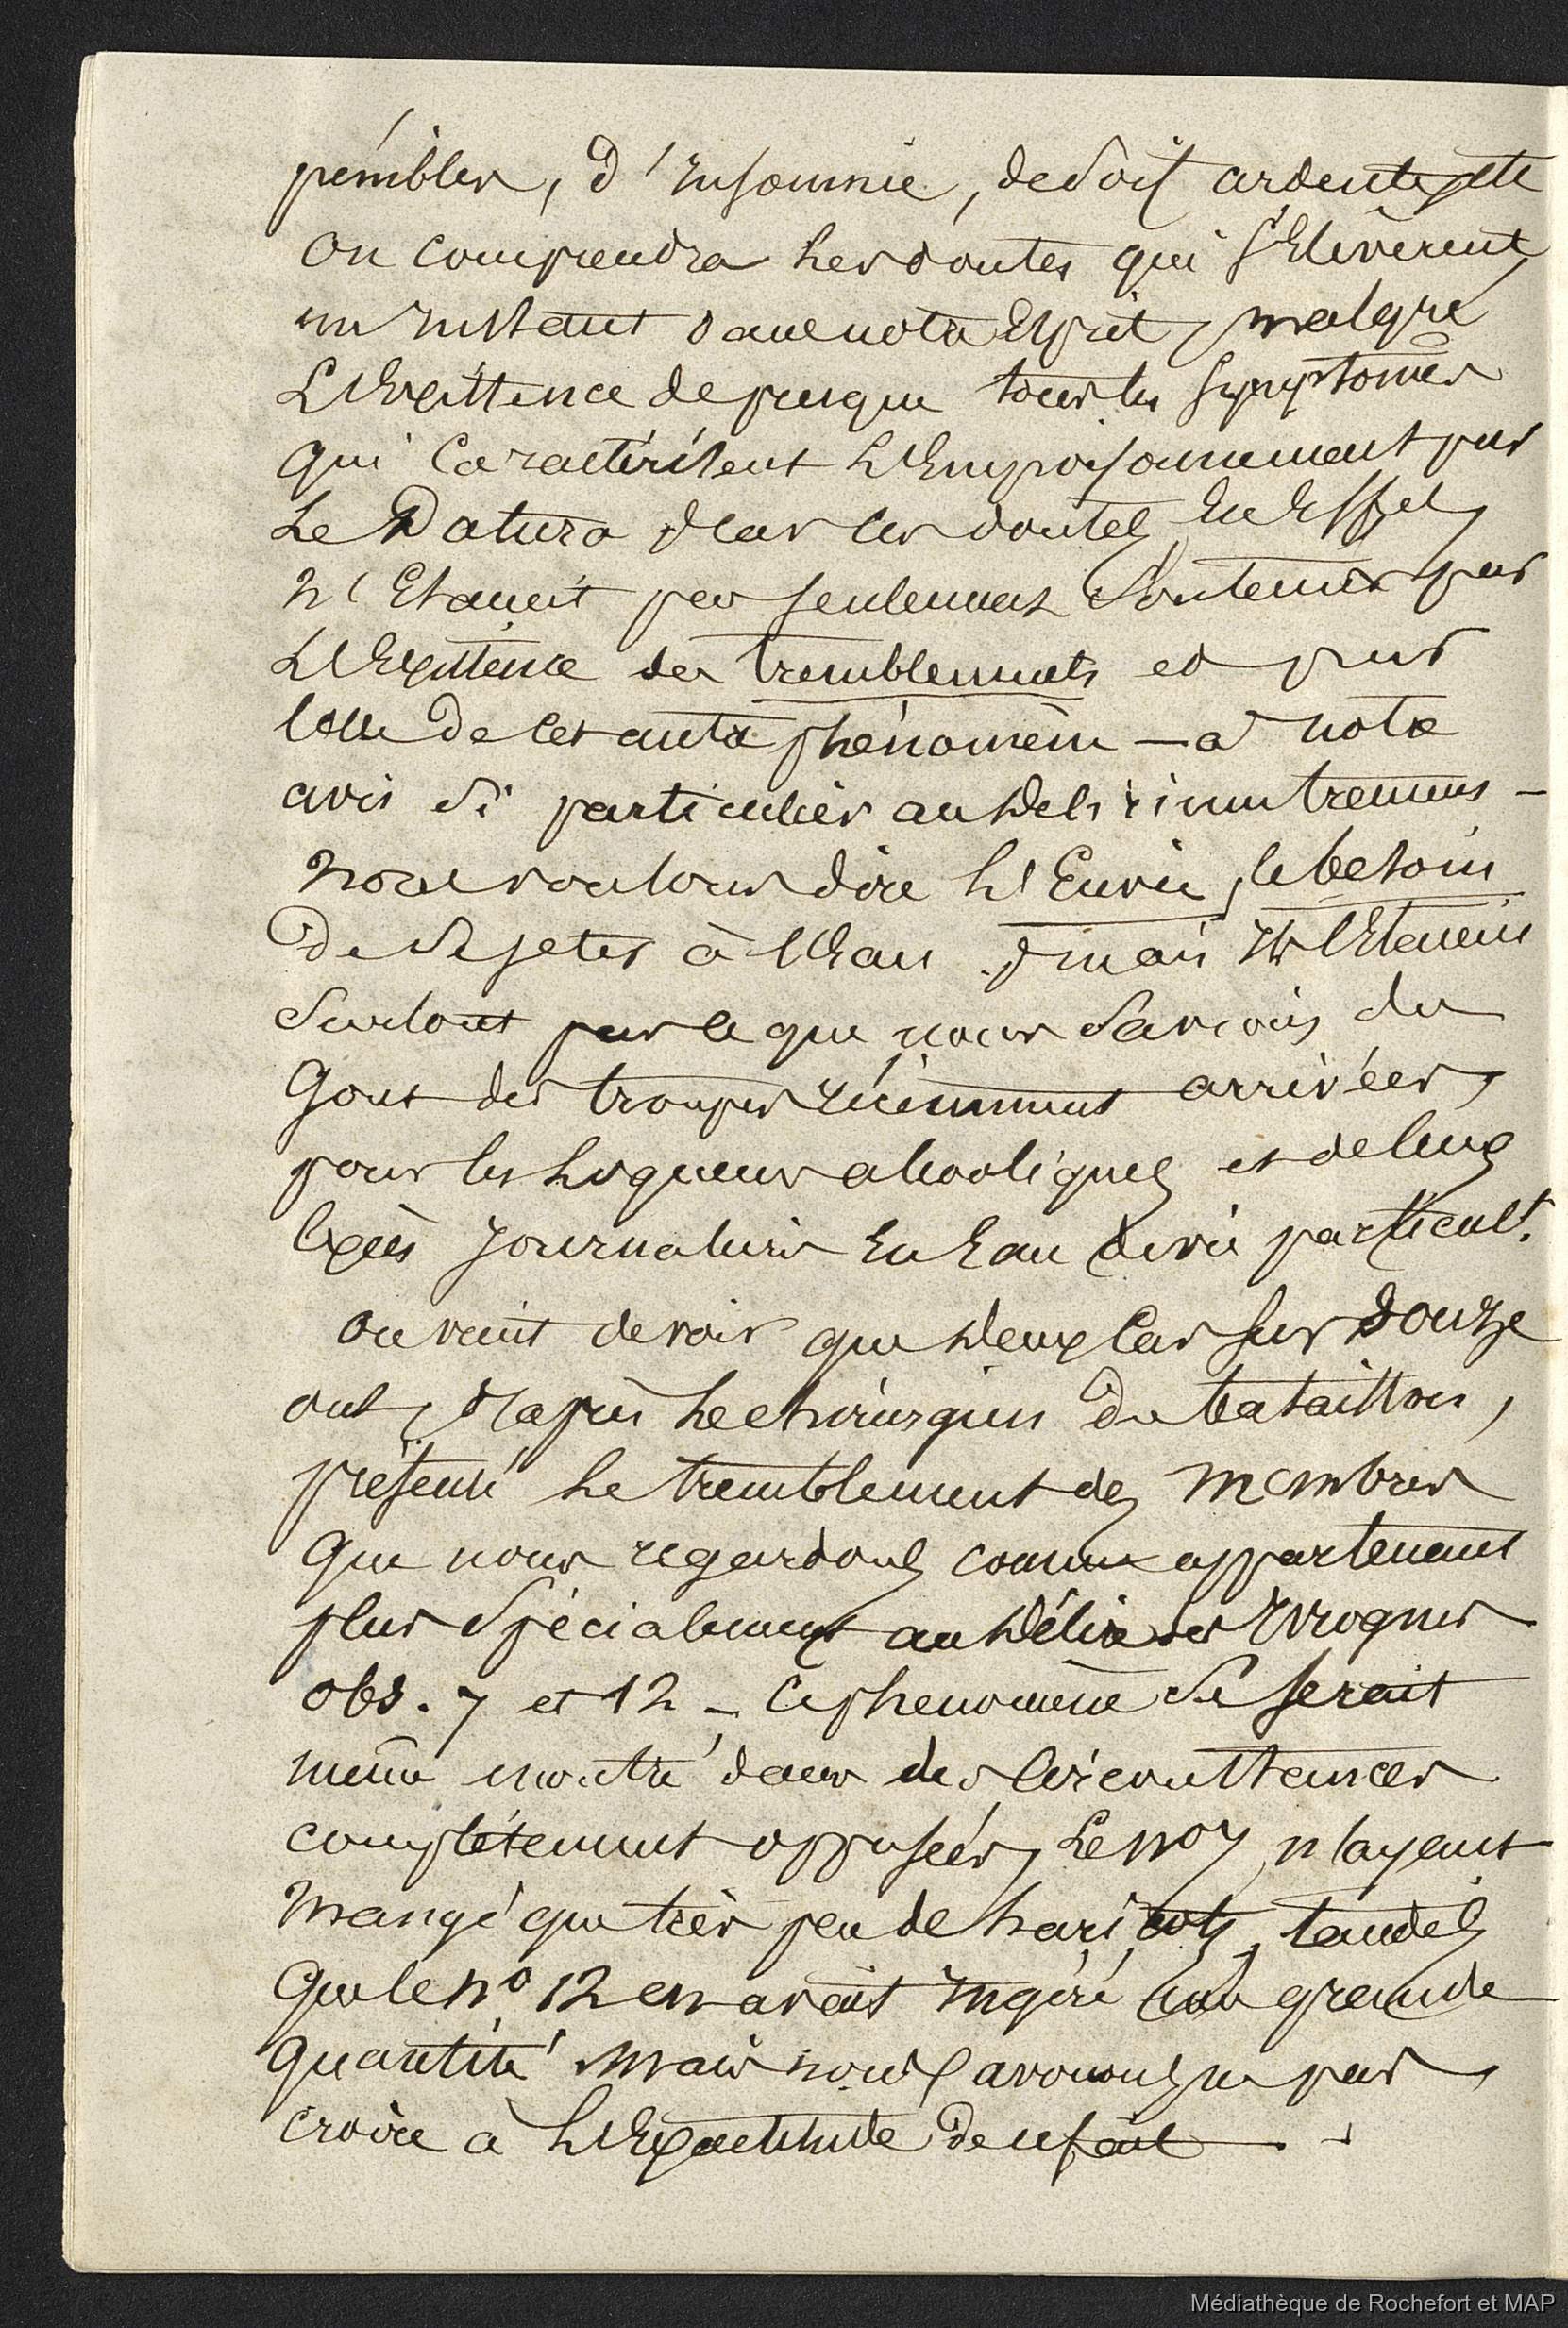 pénibles, d'Insomnie, de Soif ardente, etc
on comprendra les doutes qui s'Elevèrent,
un Instant dans notre Esprit, malgré
L'Existence de presque tous les Symptomes
qui Caractérisent L'Empoisonnement par
Le Datura. Car les doutes, En Effet,
n'Etaient pas seulement Soutenus par
L'Existence des tremblements et par
Celle de cet autre phénomène — à notre
avis si particulier au Delirium tremens —
nous voulons dire L'Envie, le besoin
De Se jeter à l'Eau, mais Ils l'Etaient
Surtout par ce que nous Savions du
Gout des troupes récemment arrivées,
pour les Liqueurs alcooliques et de leurs
Excès Journaliers En Eau de vie particult.
on vient de voir que Deux Cas sur Douze
ont, D'après Le chirurgien Du bataillon,
présenté Le tremblement des membres
que nous regardons comme appartenant
plus Spécialement au Délire des Ivrognes
obs. 7 et 12 — Ce phenomène Se serait
même montré dans des Circonstances
complétement opposées, Le no 7 n'ayant
mangé que très peu de haricots, tandis
que le no 12 en avait Ingéré une grande
quantité. Mais nous avouons ne pas,
croire à L'Exactitude De ce fait.
Médiathèque de Rochefort et MAP